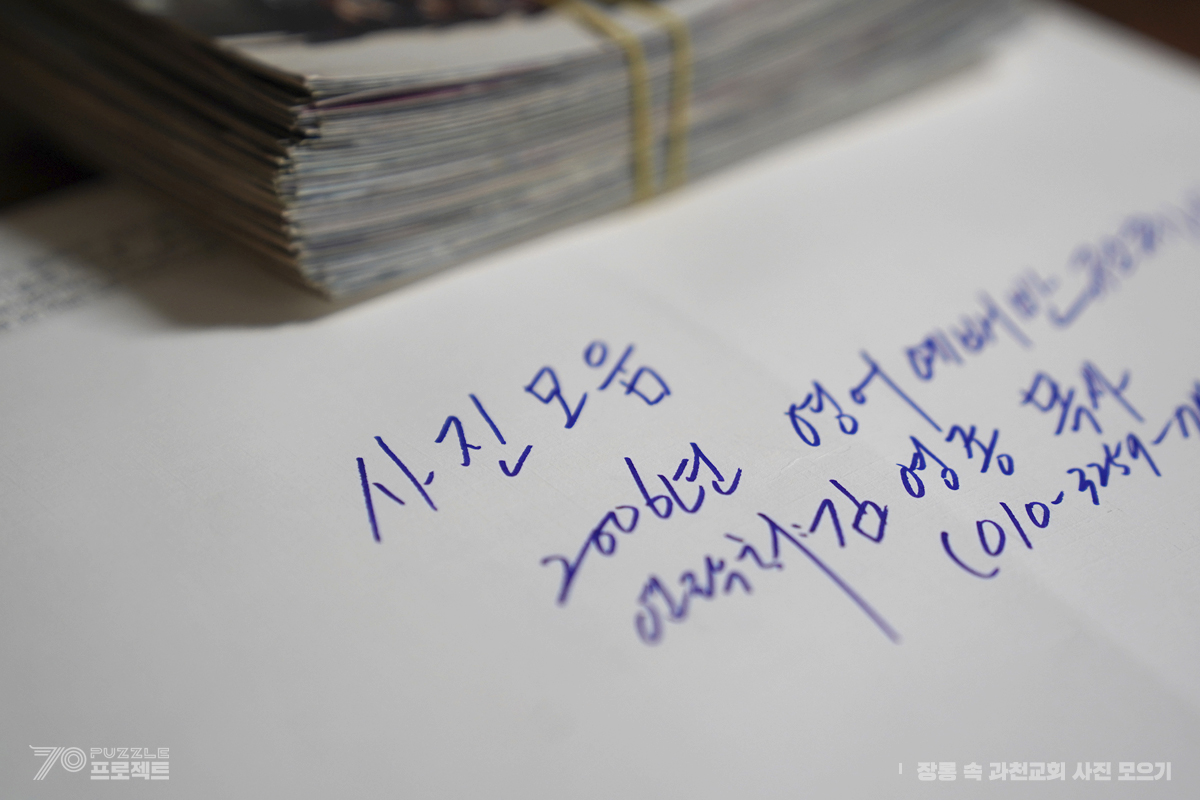 사진 모음
2006년 영어 예배반
연락처: 김영종 목사
(010-3259-
70 PUZZLE
프로젝트
장롱 속 과천교회 사진 모으기